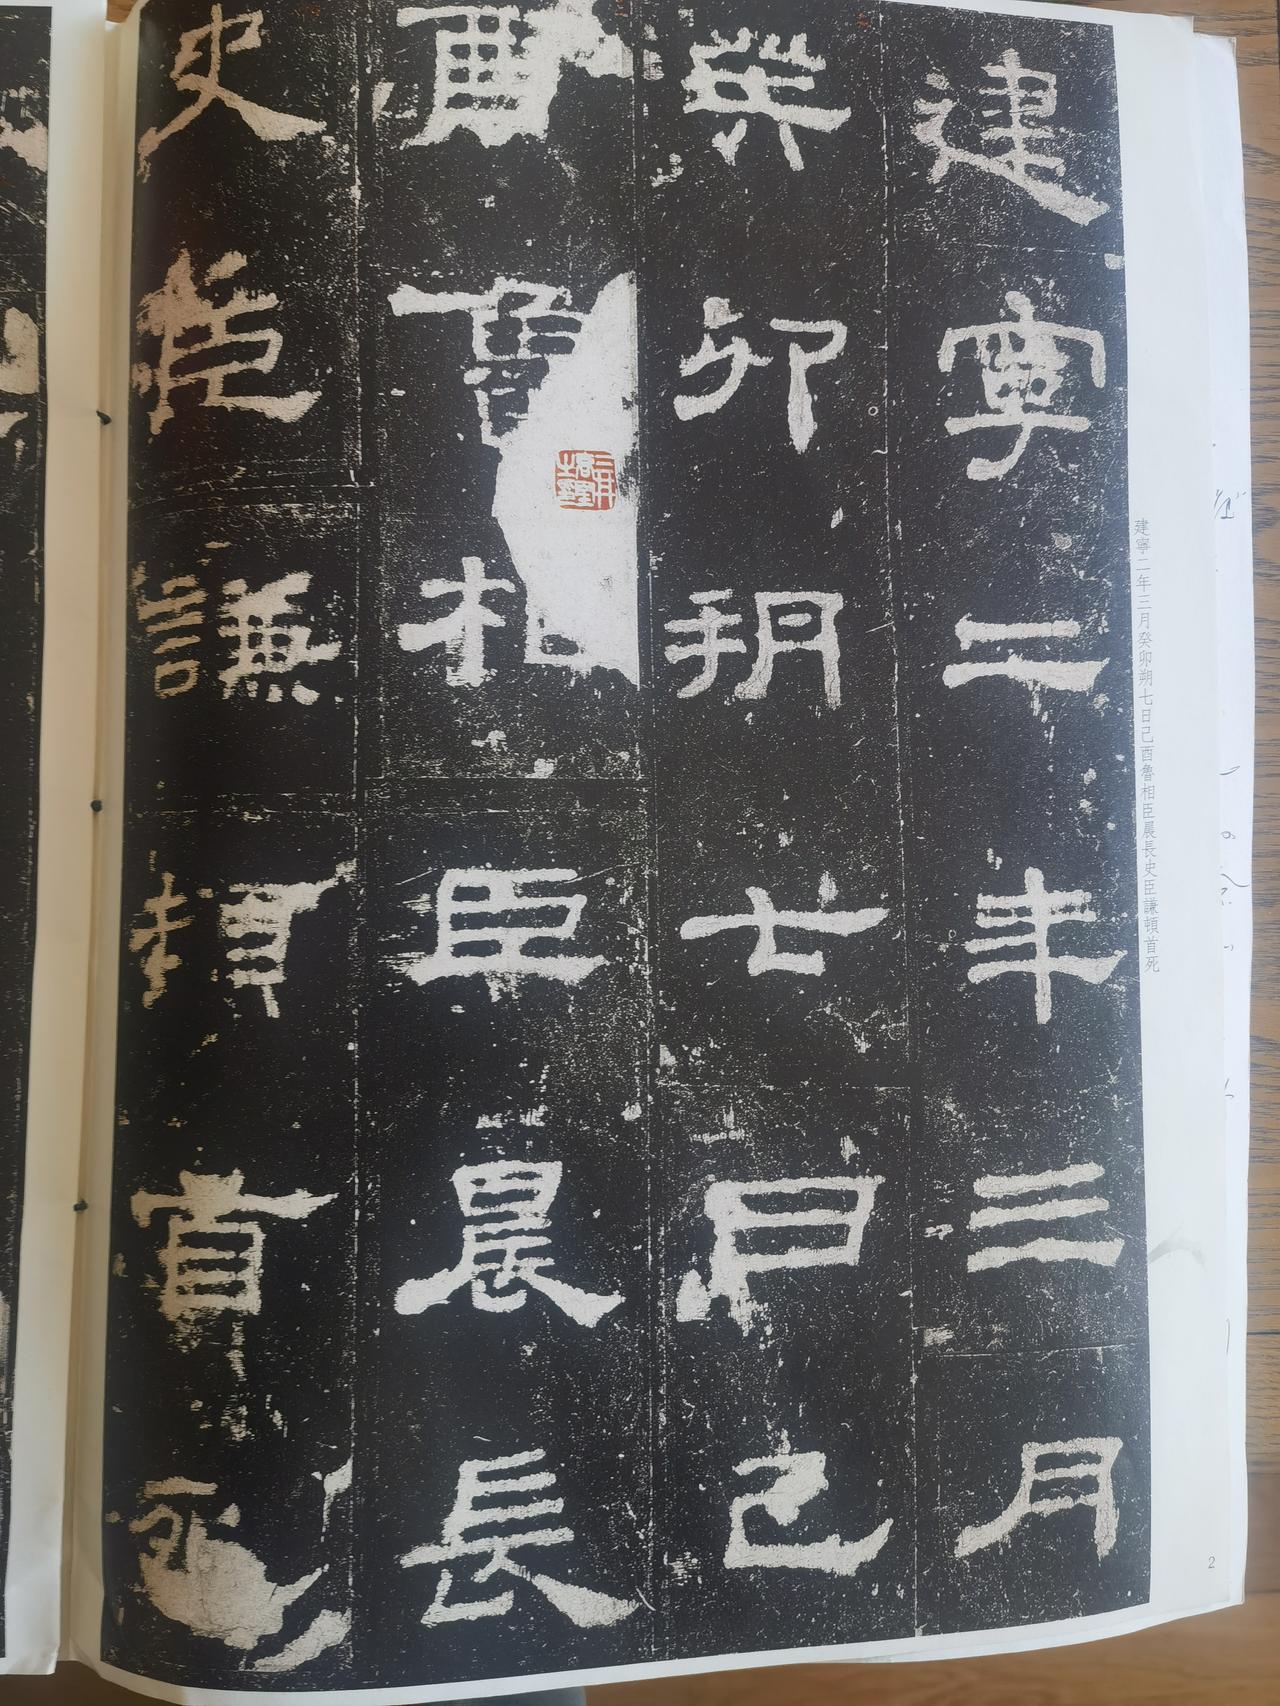 建寧二年三月
癸卯朔七日己
酉魯相臣晨長
史臣謙頓首死
建寧二年三月癸卯朔七日己酉魯相臣晨長史臣謙頓首死
2